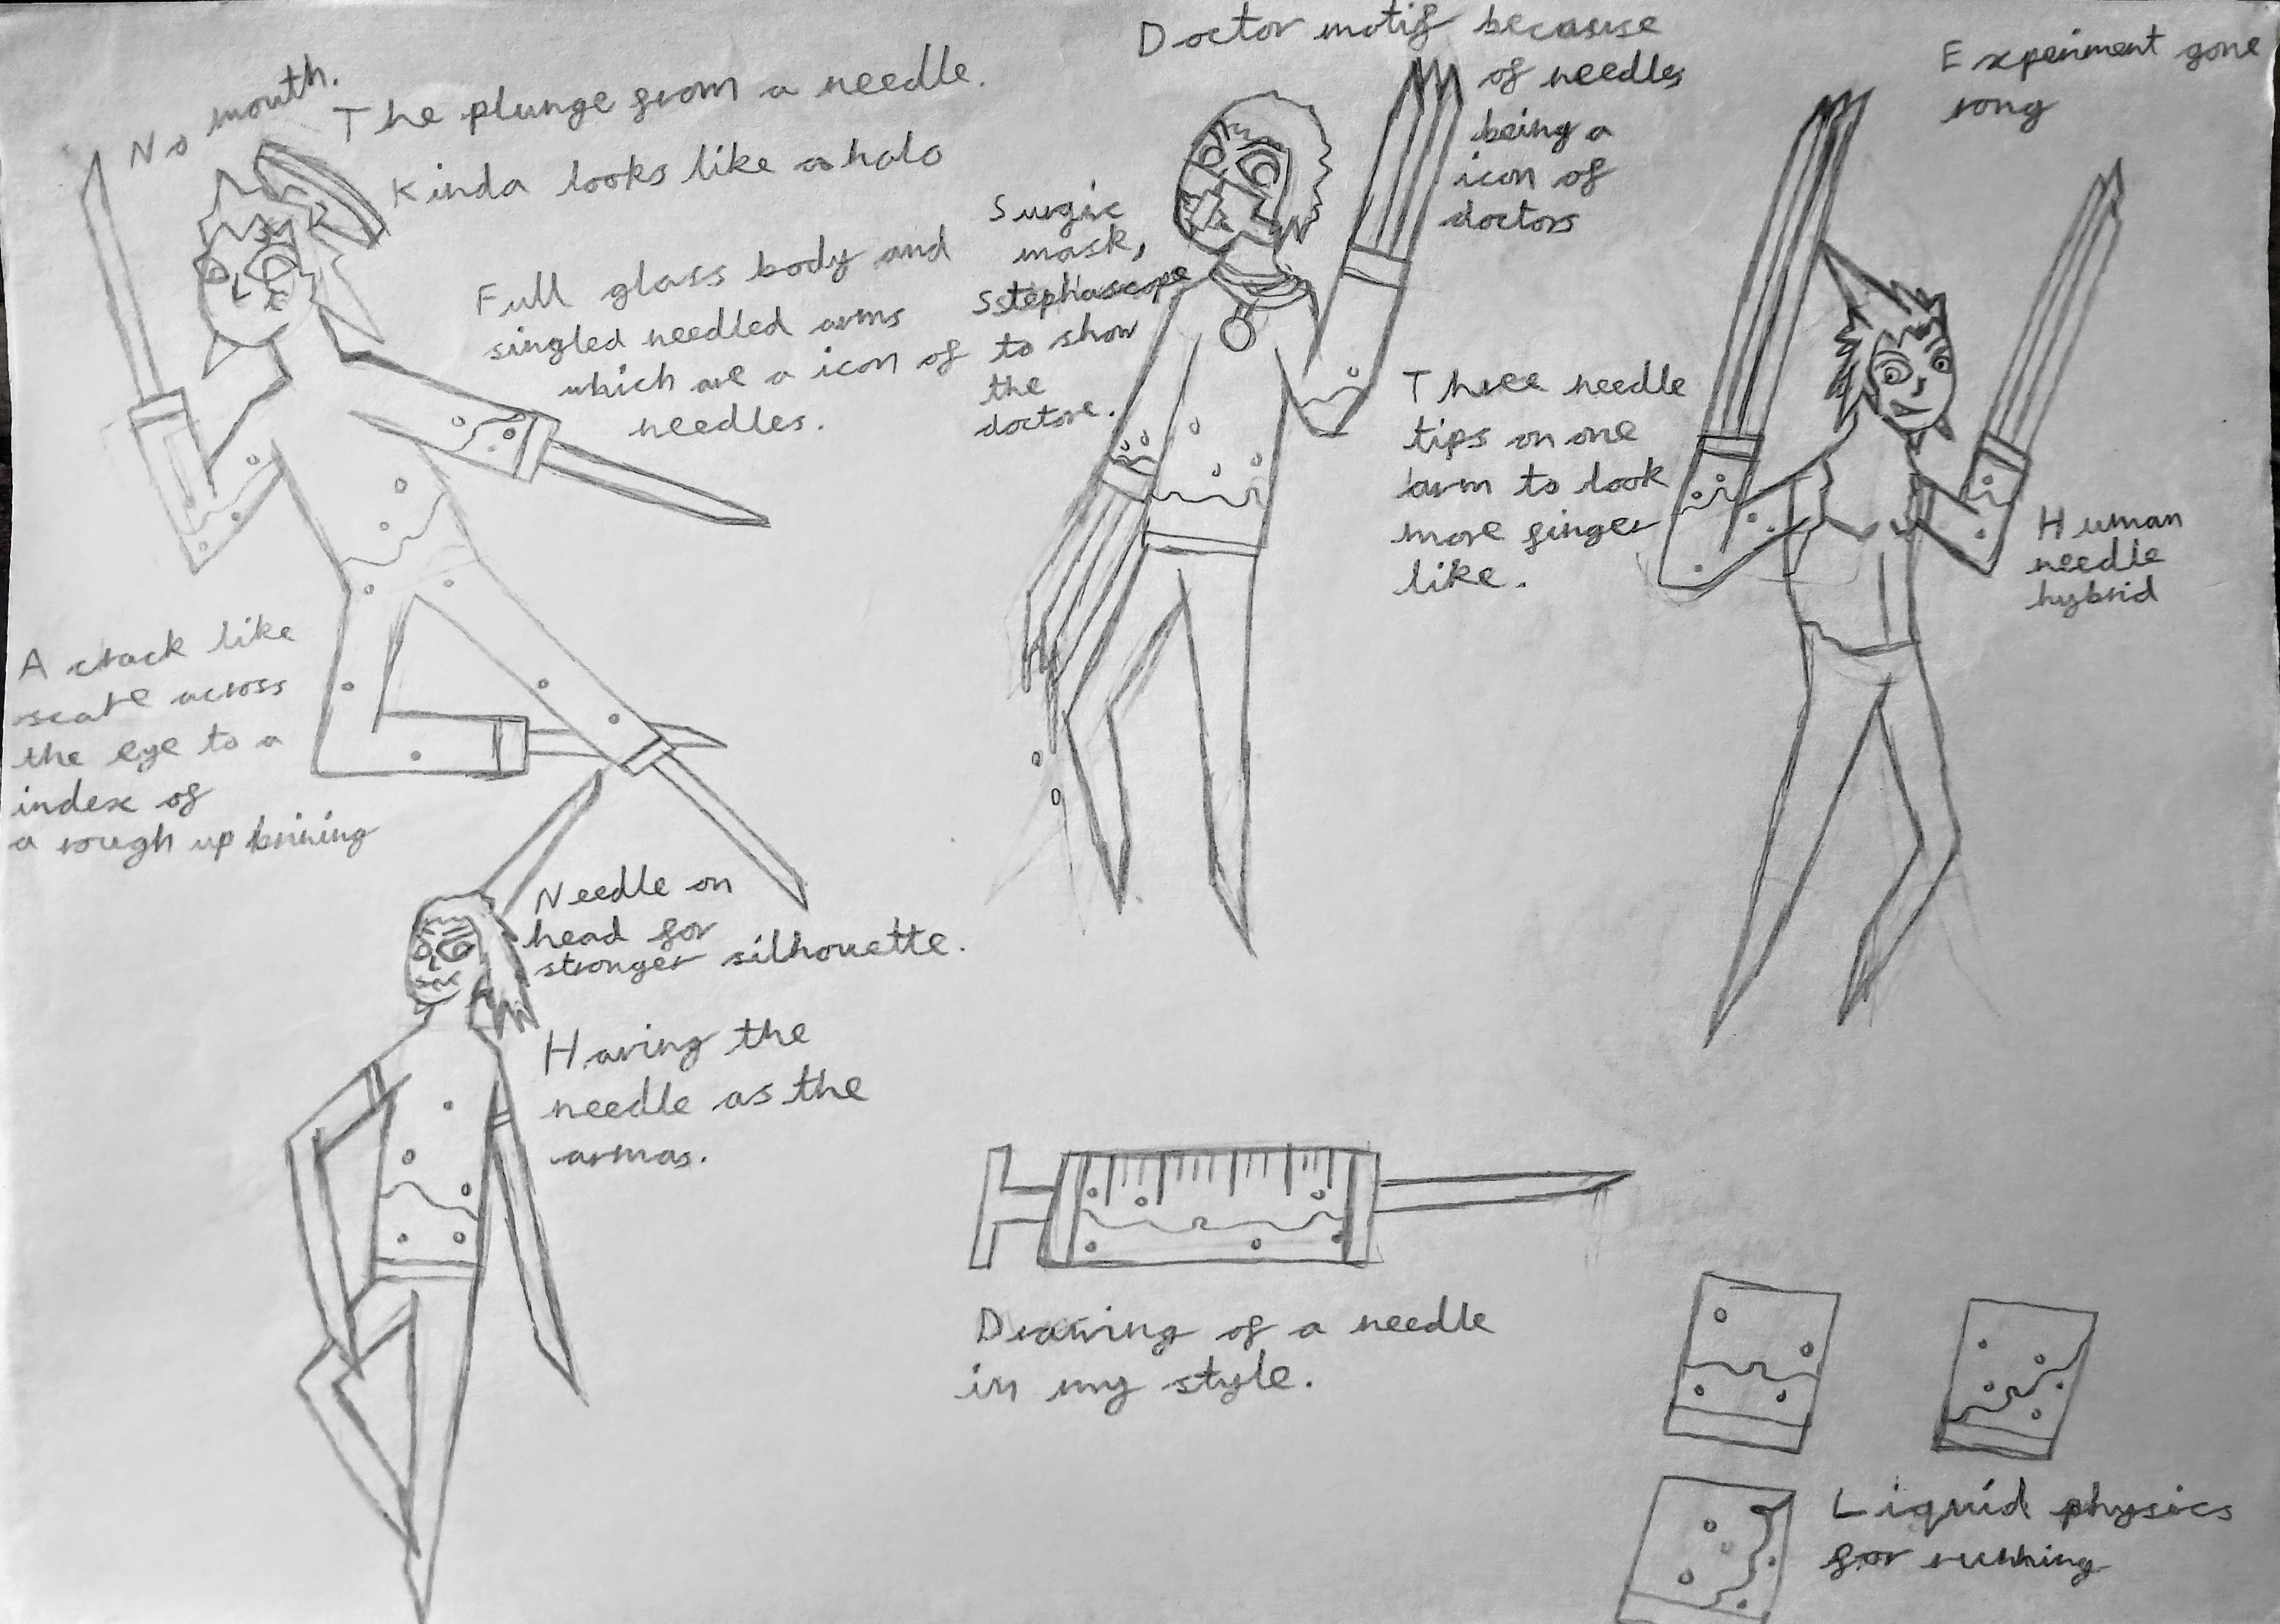 No mouth.
The plunge from a needle.
Kinda looks like a halo
Full glass body and
singled needled arms
which are a icon of
needles.
A crack like
scare across
the eye to a
index of
a rough up brining
Needle on
head for
stronger silhouette.
Having the
needle as the
armas.
Doctor motif because
of needles
being a
icon of
doctors
Surgic
mask,
Sstephascope
to show
the
doctore.
Three needle
tips on one
arm to look
more finger
like.
Experiment gone
rong
Human
needle
hybrid
Drawing of a needle
in my style.
Liquid physics
for running